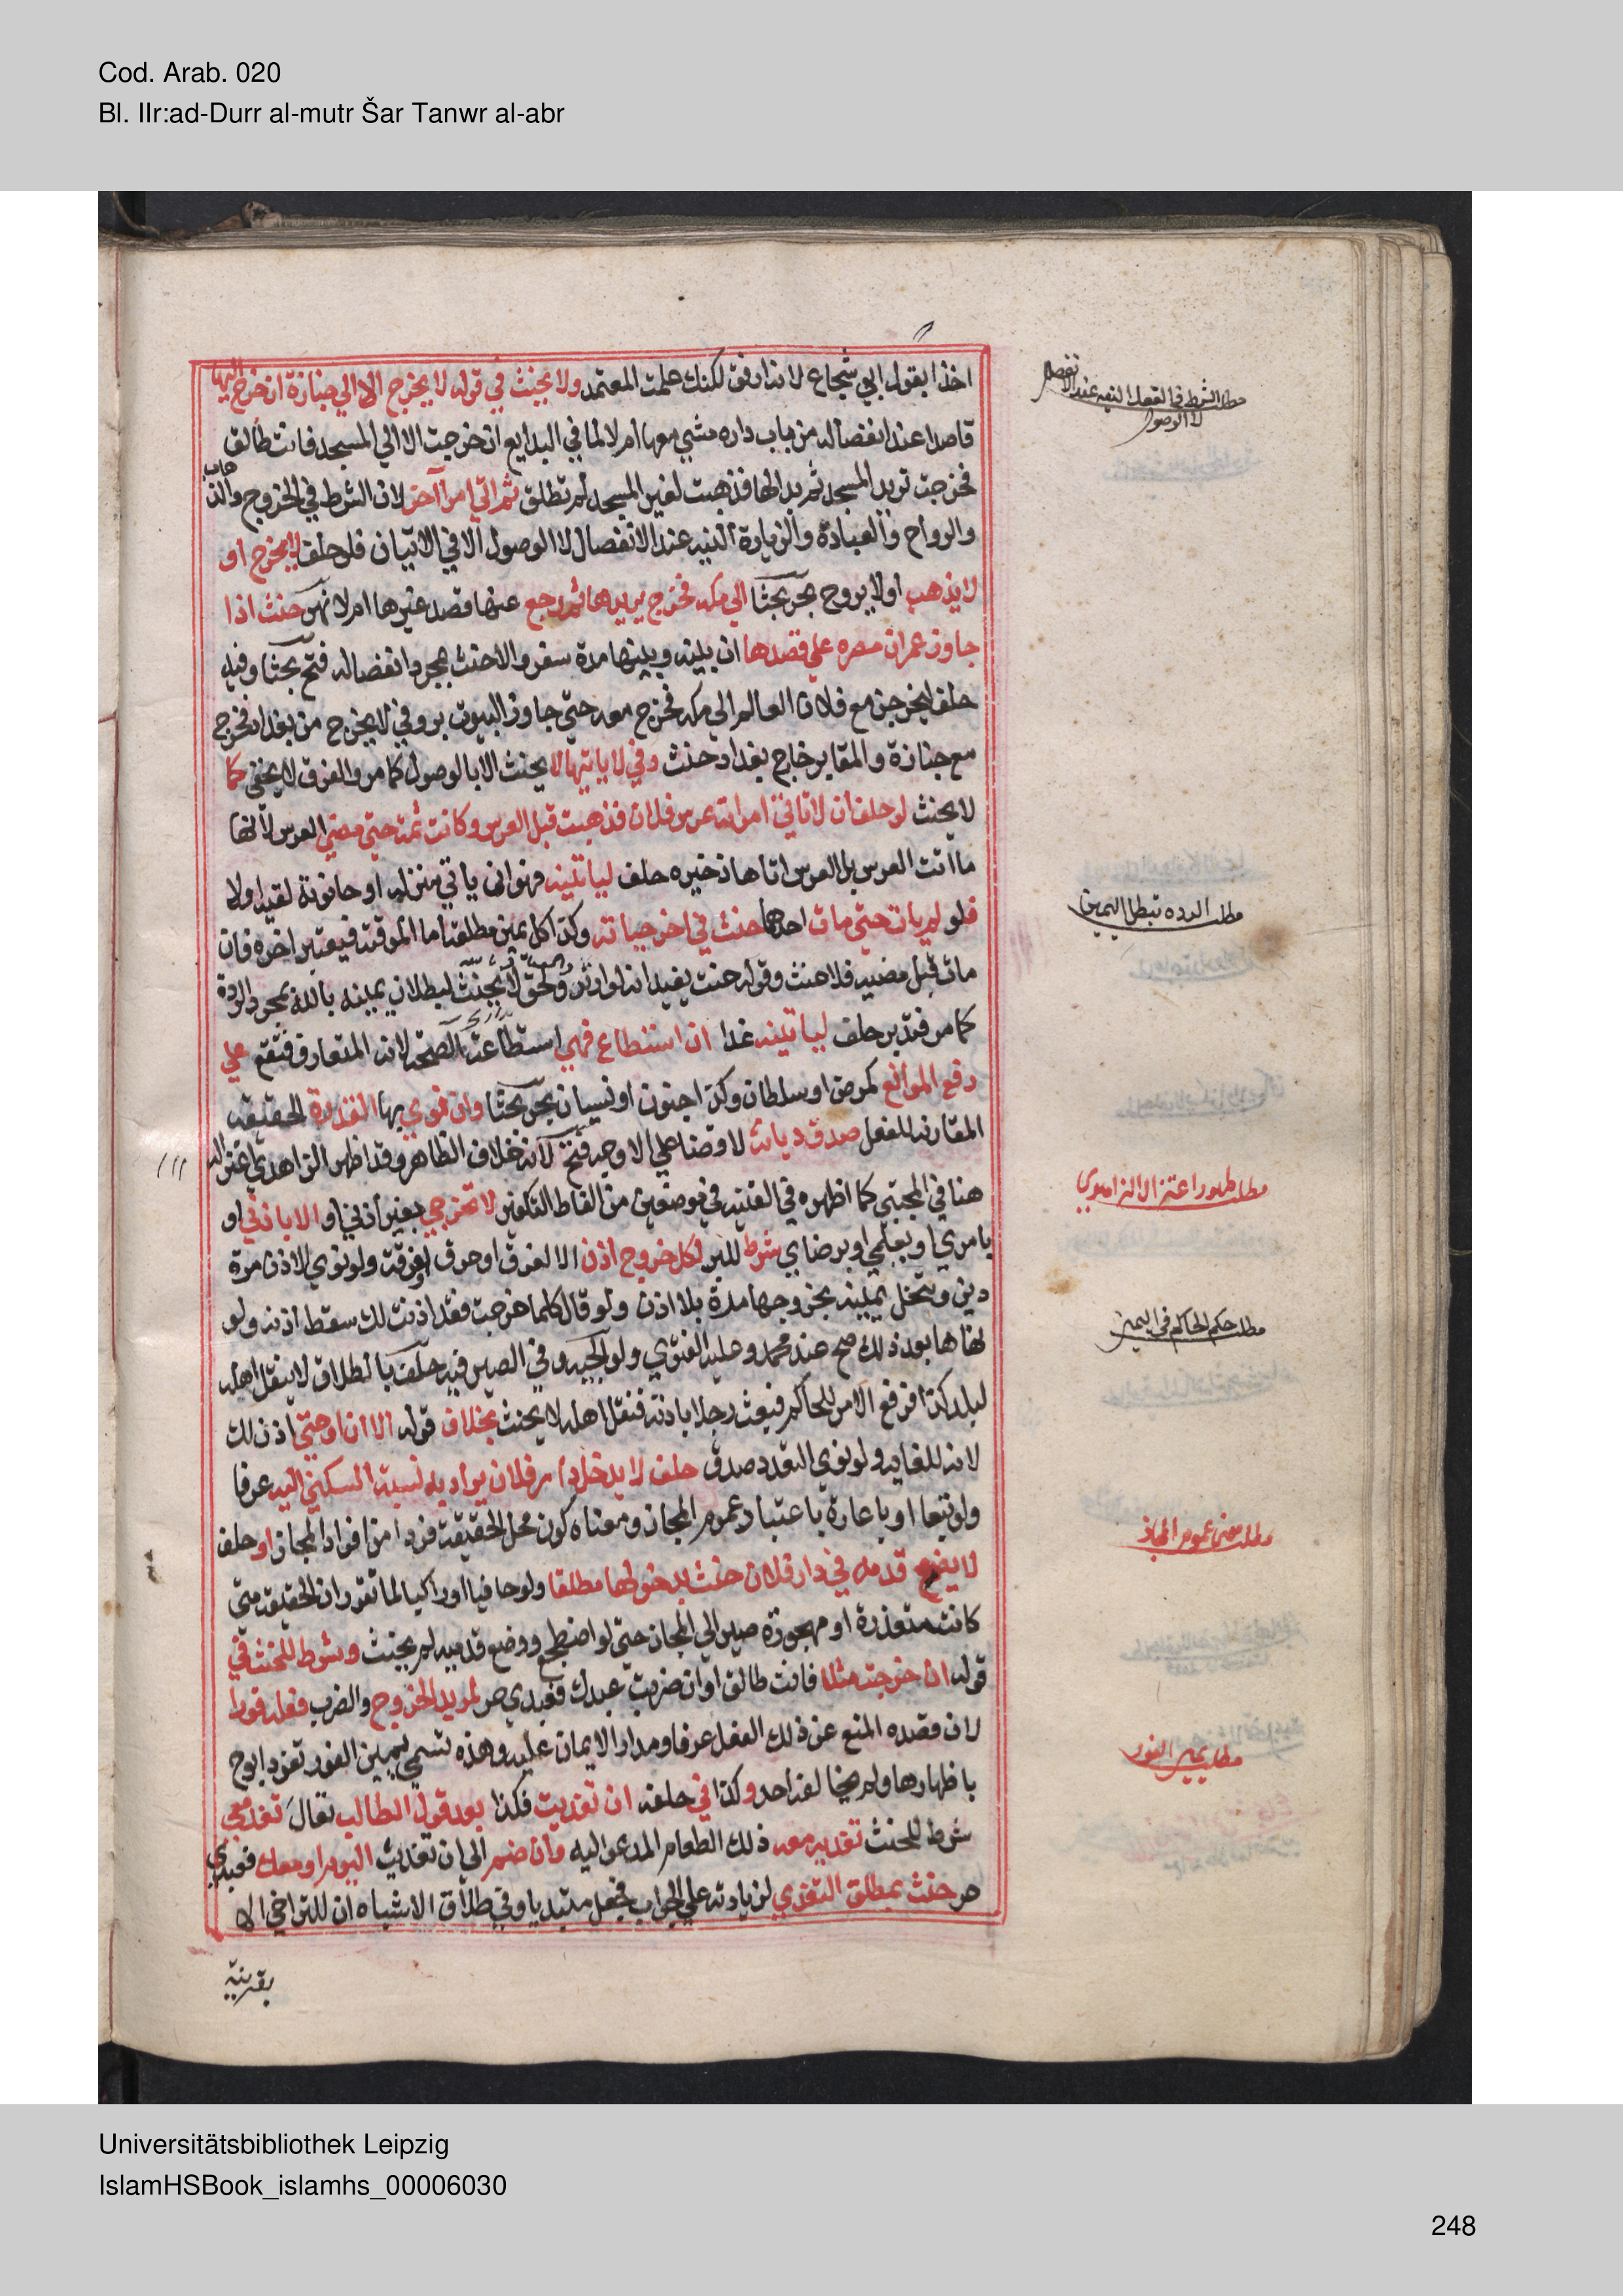 Cod. Arab. 020
Bl. IIr:ad-Durr al-mutr Šar Tanwr al-abr
اخذا بقول ابي شجاع لانه ارفق لكنك علمت المعتمد ولا يحنث في قوله لا يخرج الا الي جنازة ان خرج اليها
قاصدا عند انفصاله من باب داره مشي معها ام لا لما في البدايع ان خرجت الا الي المسجد فانت طالق
فخرجت تريد المسجد ثم بدا لها فذهبت لغير المسجد لم تطلق ثم اتي امرا آخر لان الشرط في الخروج والذهاب
والرواح والعيادة والزيارة النيه عند الانفصال لا الوصول الا في الاتيان فلو حلف لا يخرج او
لا يذهب او لا يروح بحر بحثا الي مكه فخرج يريدها ثم رجع عنها قصد غيرها ام لا نهر حنث اذا
جاوز عمران مصره علي قصدها ان بينه وبينها مدة سفر والا حنث بمجرد انفصاله فتح بحثا وفيه
حلف ليخرجن مع فلان العالم الي مكه فخرج معه حتي جاوز البيوت بر وفي لا يخرج من بغداد فخرج
مع جنازة والمقابر خارج بغداد حنث وفي لا ياتيها لا يحنث الا بالوصول كما مر والفرق لا يخفي كما
لا يحنث لو حلف ان لا تاتي امراته عرس فلان فذهبت قبل العرس وكانت ثمه حتي مضي العرس لانها
ما اتت العرس بل العرس اتاها ذخيره حلف لياتينه فهو ان ياتي منزله او حانوته لقيه او لا
فلو لم يات حتي مات احدهما حنث في اخر حياته وكذا كل يمين مطلقة اما الموقتة فيعتبر اخره فان
مات قبل مضيه فلا حنث وقوله حنث يفيد انه لو ارتد ولحق لا يحنث لبطلان يمينه بالله بمجرد الردة
كما مر فتدبر حلف لياتينه غدا ان استطاع فهي استطاعة الصحة لانه المتعارف فتقع علي
رفع الموانع كمرض او سلطان وكذا جنون او نسيان بحر بحثا وان نوي بها القدرة الحقيقه
المقارنه للفعل صدق ديانة لا قضا علي الاوجه فتح لانه خلاف الظاهر وقد اظهر الزاهدي اعتزاله
هنا في المجتبي كما اظهره في القنيه في موضعين من الفاظ التكفير لا تخرجي بغير اذني او الا باذني او
بامري او بعلمي او برضاي شرط للبر لكل خروج اذن الا لغرق او حرق او فرقت ولو نوي الاذن مرة
دين وتنحل يمينه بخروجها مرة بلا اذن ولو قال كلما خرجت فقد اذنت لك سقط اذنه ولو
نهاها بعد ذلك صح عند محمد وعليه الفتوي ولوالجيه وفي الصيرفيه حلف بالطلاق لا ينقل اهله
لبلد كذا فرفع الامر للحاكم فبعث رجلا باذنه فنقل اهله لا يحنث بخلاف قوله الا ان او حتي اذن لك
لانه للغايه ولو نوي التعدد صدق حلف لا يدخل دار فلان يراد به نسبة السكني اليه عرفا
ولو تبعا او باعارة باعتبار عموم المجاز ومعناه كون محل الحقيقة فردا من افراد المجاز او حلف
لا يضع قدمه في دار فلان حنث بدخولها مطلقا ولو حافيا او راكبا لما تقرر ان الحقيقة متي
كانت متعذرة او مهجورة صير الي المجاز حتي لو اضطجع ووضع قدميه لم يحنث وشرط للحنث في
قوله ان خرجت مثلا فانت طالق او ان ضربت عبدك فعبدي حر لمريد الخروج والضرب فعله فورا
لان قصده المنع عن ذلك الفعل عرفا ومدار الايمان عليه وهذه تسمي يمين الفور تفرد ابو ح
باظهارها ولم يخالفه احد وكذا في حلفه ان تغديت فكذا بعد قول الطالب تعال تغد معي
شرط للحنث تغديه معه ذلك الطعام المدعو اليه وان ضم الي ان تغديت اليوم او معك فعبدي
حر حنث بمطلق التغدي لزيادته علي الجواب فجعل مبتديا وفي طلاق الاشباه ان للتراخي الا
بقرينة
مطلب الشرط في الفعل النيه عند الانفصال
لا الوصول
مطلب الرده تبطل اليمين
مطلب ظهور اعتزال الزاهدي
مطلب حكم الحاكم في اليمين
مطلب معني عموم المجاز
مطلب يمين الفور
Universitätsbibliothek Leipzig
IslamHSBook_islamhs_00006030
248